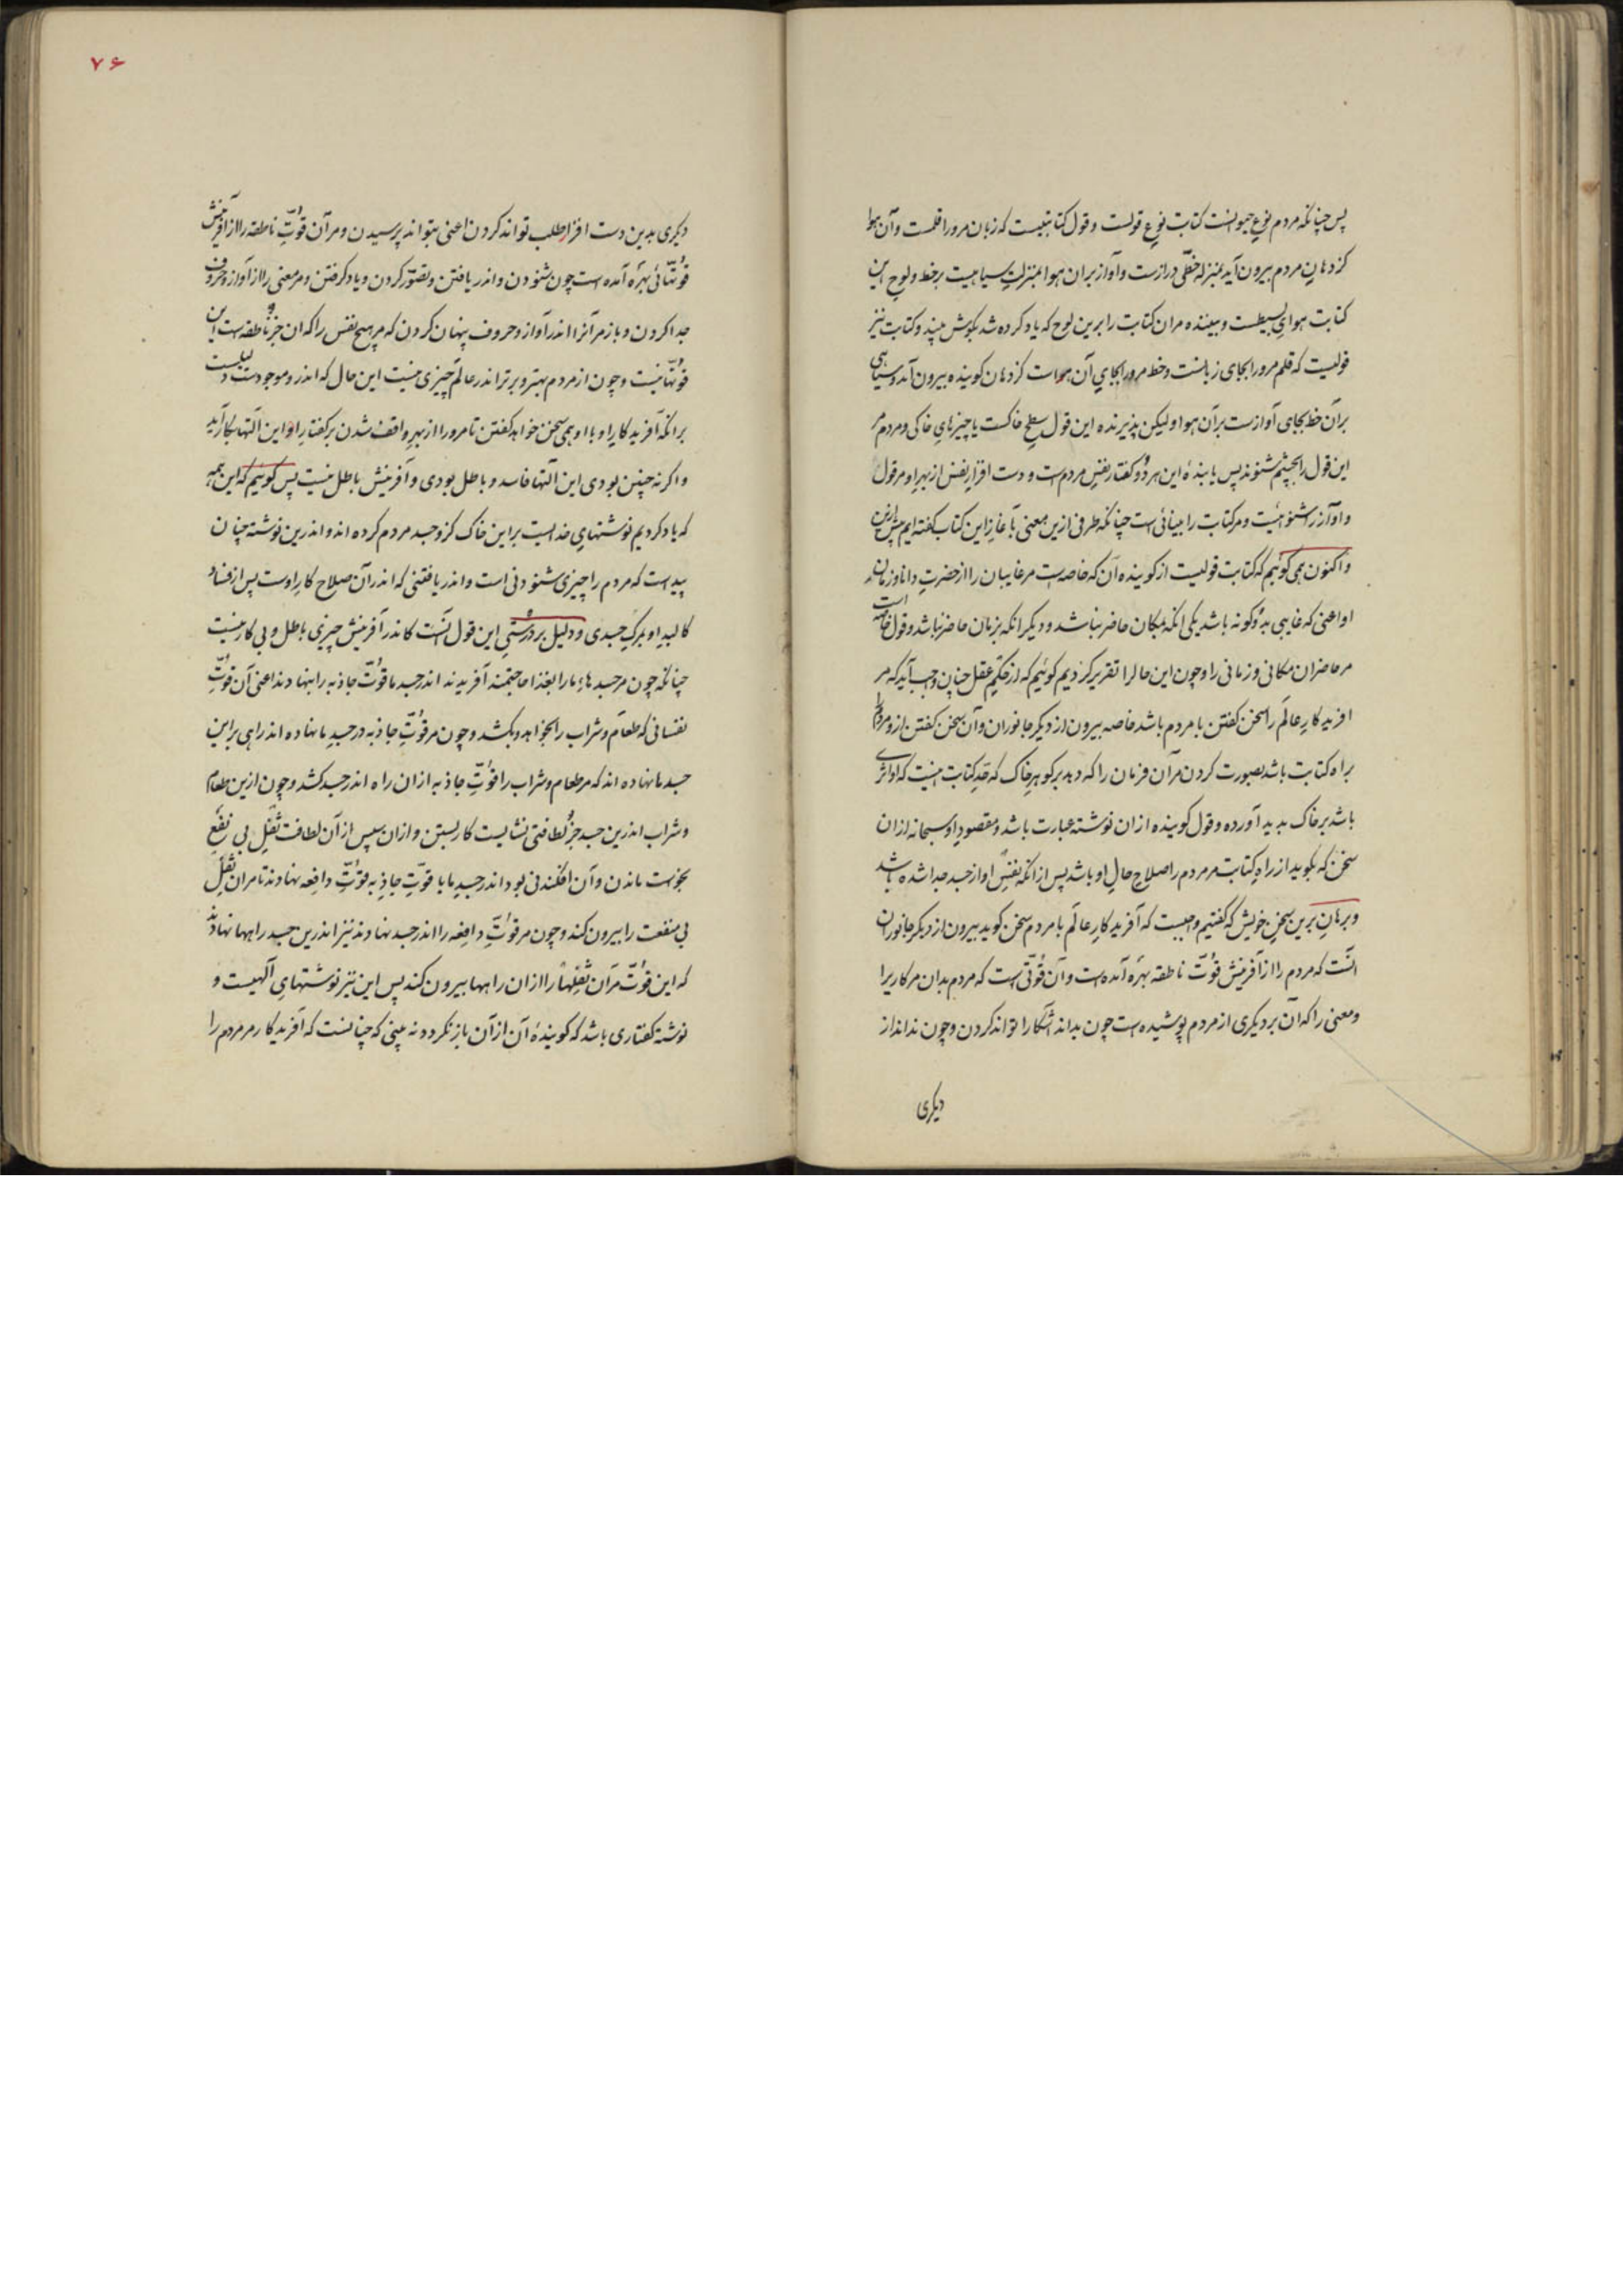 پس چنانکه مردم نوع حیوانست کتابت نوع قولست و قول کتابتیست که زبان مرورا قلمست و آن هوا
کز دهان مردم بیرون آید بمنزله خطّی درازست و آواز بران هوا بمنزلتِ سیاهیست برخط و لوحِ این
کتابت هوایِ بسیطست و بیننده مران کتابت را برین لوح که یاد کرده شد بگوش بیند و کتابت نیز
قولیست که قلم مرورا بجای زبانست و خط مرورا بجایِ آن هواست کز دهان گوینده بیرون آید و سیاهی
برآن خط بجای آوازست برآن هوا ولیکن پذیرنده این قول سطحِ خاکست یا چیزهایِ خاکی و مردم مر
این قول را بچشم شنوند پس یابندهٔ این هر دو گفتار نفسِ مردم است و دست افزارِ نفس از بهرِ او مر قول
و آواز را شنوائیست و مر کتابت را بینائی است چنانکه طرفی ازین معنی بآغازِ این کتاب گفته ایم پیش ازین
و اکنون همی گوئیم که کتابت قولیست از گوینده آن که خاصه است مر غایبان را از حضرتِ دانا و زمانِ
او اعنی که غایبی بدو گونه باشد یکی آنکه بمکان حاضر نباشد و دیگر آنکه بزمان حاضر نباشد و قول خاصه است
مر حاضران مکانی و زمانی را و چون این حال را تقریر کردیم گوئیم که از حکمِ عقل چنان واجب آید که مر
آفریدگارِ عالَم را سخن گفتن با مردم باشد خاصه بیرون از دیگر جانوران و آن سخن گفتن ازو مردم را
براه کتابت باشد بصورت کردن مرآن فرمان را که دهد بر گوهرِ خاک که حَدِ کتابت اینست که او اثری
باشد بر خاک پدید آورده و قول گوینده ازان نوشته عبارت باشد و مقصودِ او سبحانه ازان
سخن که بگوید از راهِ کتابت مر مردم را صلاحِ حالِ او باشد پس از آنکه نفسِ او از جسد جدا شده باشد
و برهانِ برین سخنِ خویش که گفتیم واجبست که آفریدگارِ عالَم با مردم سخن گوید بیرون از دیگر جانوران
آنست که مردم را از آفرینش قوّت ناطقه بهره آمده است و آن قوّتی است که مردم بدان مر کاریرا
و معنی را که آن بر دیگری از مردم پوشیده است چون بداند آشکارا تواند کردن و چون نداند از
دیگری
۷۶
دیگری بدین دست افزار طلب تواند کردن اعنی بتواند پرسیدن و مر آن قوّتِ ناطقه را از آفرینش
قوّتهائی بهره آمده است چون شنودن و اندر یافتن و تصوّر کردن و یاد گرفتن و مر معنی را از آواز و حروف
جدا کردن و باز مر آنرا اندر آواز و حروف پنهان کردن که مر هیچ نفس را که آن جز ناطقه است این
قوّتها نیست و چون از مردم بهتر و برتر اندر عالَم چیزی نیست این حال که اندر و موجودست دلیلست
برانکه آفریدگار او با او همی سخن خواهد گفتن تا مرورا از بهرِ واقف شدن بر گفتارِ او این آلتها بکار آید
و اگر نه چنین بودی این آلتها فاسد و باطل بودی و آفرینش باطل نیست پس گوئیم که این همه
که یاد کردیم نوشتهایِ خدایست براین خاک کزو جسد مردم کرده اند و اندرین نوشته چنان
پیداست که مردم را چیزی شنودنی است و اندر یافتنی که اندر آن صلاح کارِ اوست پس از فسادِ
کالبدِ او بمرگِ جسدی و دلیل بر درستیِ این قول آنست کاندر آفرینش چیزی باطل و بی کار نیست
چنانکه چون مر جسدهاءِ ما را بغذا حاجتمند آفریدند اندر جسدِ ما قوّت جاذبه را بنهادند اعنی آن قوّتِ
نفسانی که طعام و شراب را بخواهد و بکشد و چون مر قوّتِ جاذبه در جسدِ ما نهاده اند راهی برین
جسد ما نهاده اند که مر طعام و شراب را قوّتِ جاذبه ازان راه اندر جسد کشد و چون ازین طعام
و شراب اندرین جسد جز لطافتی نشایست کار بستن و ازان سپس از آن لطافت ثُفلِ بی نفعِ
بخواست ماندن و آن افکندنی بود اندر جسدِ ما با قوّتِ جاذبه قوّتِ دافعه نهادند تا مران ثفلِ
بی منفعت را بیرون کند و چون مر قوّتِ دافعه را اندر جسد نهادند نیز اندرین جسد راهها نهادند
که این قوّت مر آن ثفلها را ازان راهها بیرون کند پس این نیز نوشتهایِ الهیست و
نوشته گفتاری باشد که گویندهٔ آن از آن باز نگردد نه بینی که چنانست که آفریدگار مر مردم را